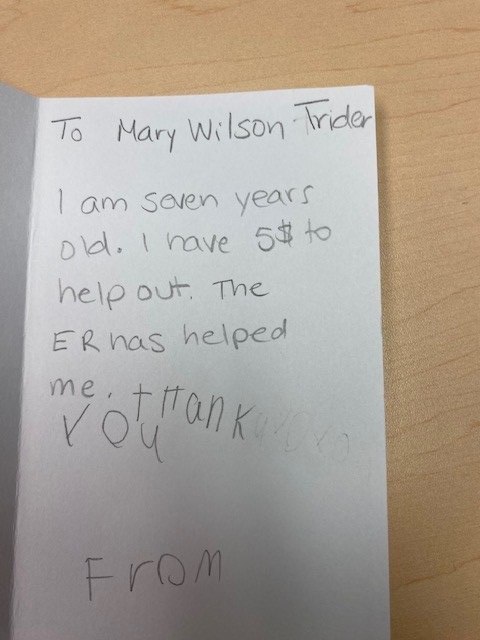 To Mary Wilson Trider
I am seven years
old. I have 5$ to
help out. The
ER has helped
me. tHank
you
From